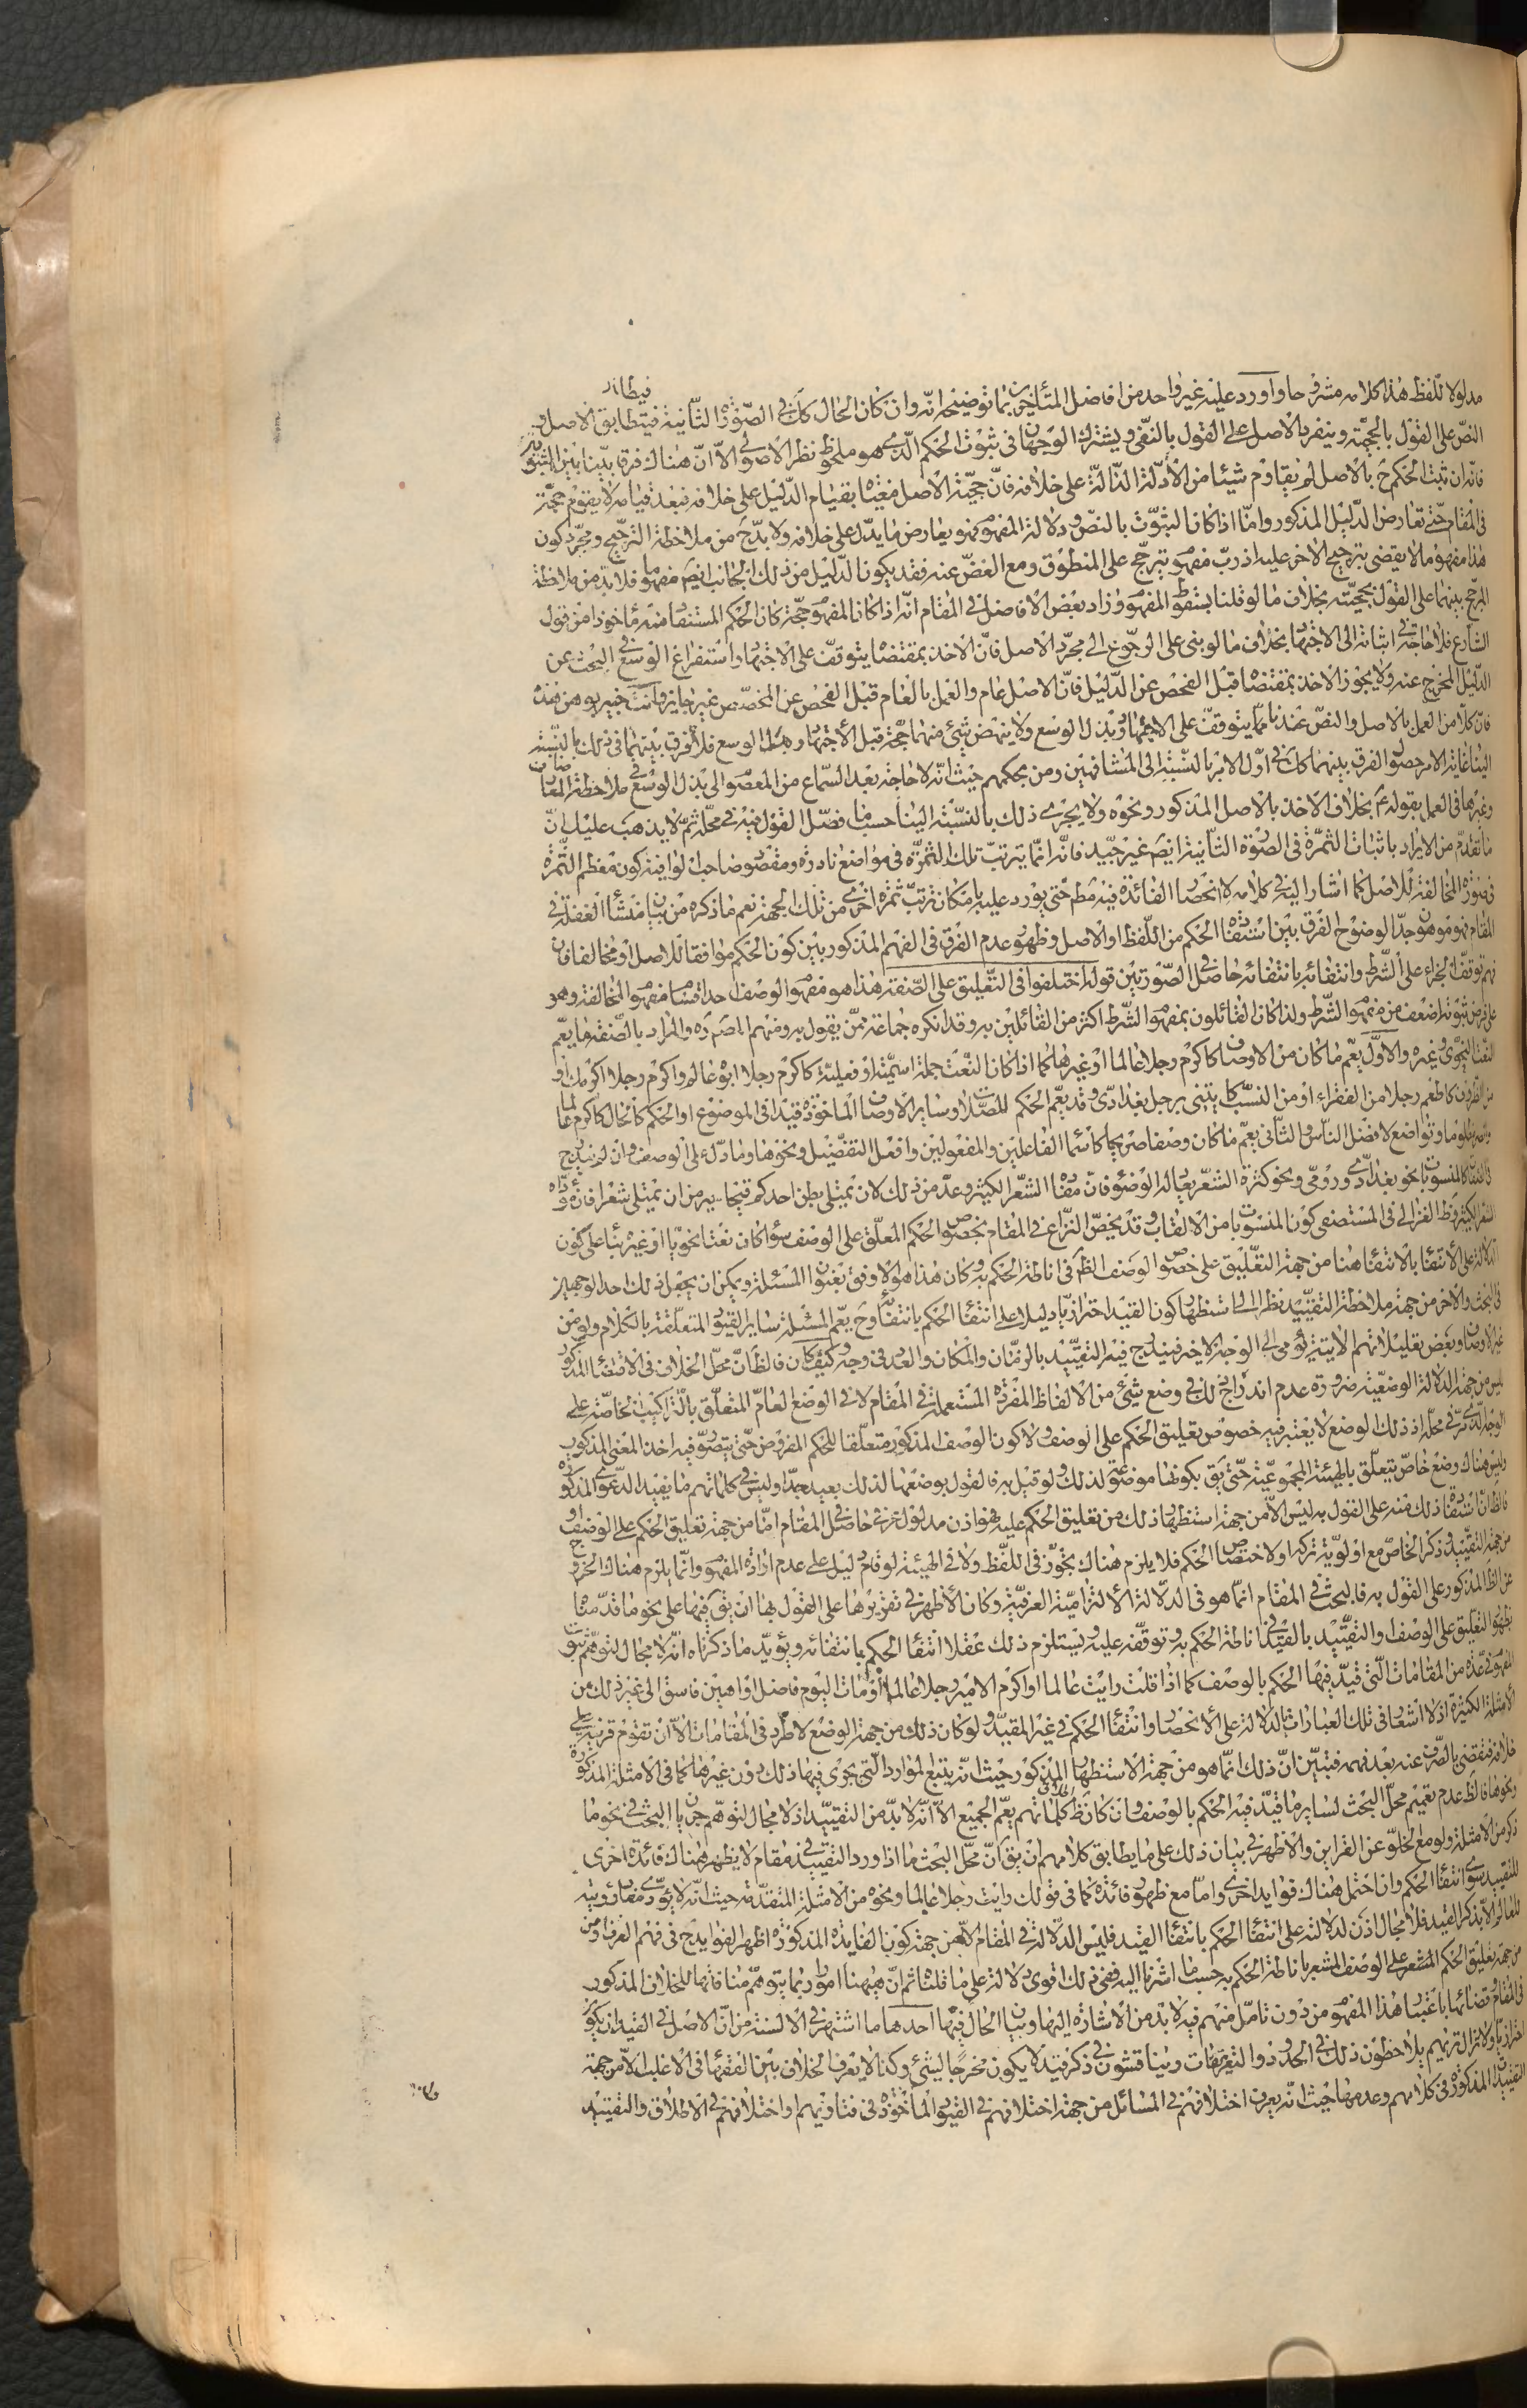 مدلولا للفظ هذا كلامه مشروحا واورد عليه غير واحد من افاضل المتأخرين بما توضيحه انه وان كان الحال كك فى الصورة الثانية فيتطابق الاصل و
النص على القول بالحجية وينفرد الاصل على القول بالنفى ويشترك الوجهان فى ثبوت الحكم الذى هو ملحوظ نظر الاصولى الا ان هناك فرقا بينا بين الثبوتين
فانه ان ثبت الحكم ح بالاصل لم يقاوم شيئا من الأدلة الدالة على خلافه فان حجية الاصل مغياة بقيام الدليل على خلافه فبعد قيامه لا يقوم حجة
فى المقام حتى تعارض الدليل المذكور واما اذا كان الثبوت بالنص ودلالة المفهوم فهو يعارض ما يدل على خلافه ولا بد ح من ملاحظة الترجيح ومجرد كون
هذا مفهوما لا يقضى بترجيح الاخر عليه اذ رب مفهوم يترجح على المنطوق ومع الغض عنه فقد يكون الدليل من ذلك الجانب ايضا مفهوما فلا بد من ملاحظة
المرجح بينهما على القول بحجيته بخلاف ما لو قلنا بسقوط المفهوم وزاد بعض الافاضل فى المقام انه اذا كان المفهوم حجة كان الحكم المستفاد منه مأخوذا من قول
الشارع فلا حاجة فى اثباته الى الاجتهاد بخلاف ما لو بنى على الرجوع الى مجرد الاصل فان الاخذ بمقتضاه يتوقف على الاجتهاد واستفراغ الوسع فى البحث عن
الدليل المخرج عنه ولا يجوز الاخذ بمقتضاه قبل الفحص عن الدليل فان الاصل عام والعمل بالعام قبل الفحص عن المخصص غير جايز وانت خبير بوهن هذه
فان كلا من العمل بالاصل والنص عندنا مما يتوقف على الاجتهاد وبذل الوسع ولا ينهض شئ منهما حجة قبل الأجتهاد وبذل الوسع فلا فرق بينهما فى ذلك بالنسبة
الينا غاية الامر حصول الفرق بينهما كك فى اول الامر بالنسبة الى المشافهين ومن بحكمهم حيث انه لا حاجة بعد السماع من المعصوم الى بذل الوسع فى ملاحظة المعارضات
وغيرها فى العمل بقوله ع بخلاف الاخذ بالاصل المذكور ونحوه ولا يجرى ذلك بالنسبة الينا حسب ما فصل القول فيه فى محله ثم لا يذهب عليك ان
ما تقدم من الايراد باثبات الثمرة فى الصورة الثانية ايضا غير جيد فانه انما يترتب تلك الثمرة فى مواضع نادرة ومقصود صاحب الوافية كون معظم الثمرة
فى صورة المخالفة للاصل كما اشار اليه فى كلامه لا انحصار الفائدة فيه مطم حتى يورد عليه بامكان ترتب ثمرة اخرى من تلك الجهة نعم ما ذكره من بيان منشأ الغفلة فى
المقام فهو موهون جدا لوضوح الفرق بين استفادة الحكم من اللفظ او الاصل وظهور عدم الفرق فى الفهم المذكور بين كون الحكم موافقا للاصل او مخالفا فان
فهم توقف الجزاء على الشرط وانتفائه بانتفائه حاصل فى الصورتين قوله اختلفوا فى التعليق على الصفة هذا هو مفهوم الوصف احد اقسام مفهوم المخالفة وهو
على فرض ثبوته اضعف من مفهوم الشرط ولذا كان القائلون بمفهوم الشرط اكثر من القائلين به وقد انكره جماعة ممن يقول به ومنهم المصنف ره والمراد بالصفة ما يعم
النعت النحوى وغيره والاول يعم ما كان من الاوصاف كاكرم رجلا عالما او غيرها كما اذا كان النعت جملة اسمية او فعلية كاكرم رجلا ابوه عالم واكرم رجلا اكرمك او
من الظروف كاطعم رجلا من الفقراء او من النسب كايتنى برجل بغدادى وقد يعم الحكم للصلات وساير الاوصاف المأخوذة قيدا فى الموضوع او الحكم كالحال كاكرم عالما
واصبر مظلوما وتواضع لافضل الناس والثانى يعم ما كان وصفا صريحا كاسماء الفاعلين والمفعولين وافعل التفضيل ونحوها وما دل على الوصف وان لم يندرج
فى الصفات كالمنسوب بالنحو بغدادى ورومى ونحو كثرة الشعر يعاد له الوضوء فان مفاده الشعر الكثير وعد من ذلك لان يمتلى بطن احدكم قيحا خير من ان يمتلى شعرا فان مؤداه
الشعر الكثير وظ الغزالى فى المستصفى كون المنسوب بامن الالقاب وقد يخص النزاع فى المقام بخصوص الحكم المعلق على الوصف سواء كان نعتا نحويا او غيره بناء على كون
الدلالة على الأنتفاء بالانتفاء هنا من جهة التعليق على خصوص الوصف الظاهر فى اناطة الحكم به وكان هذا هو الاوفق بعنوان المسئلة ويمكن ان يجعل ذلك احد الوجهين
فى البحث والاخر من جهة ملاحظة التقييد نظرا الى استظهار كون القيد احترازيا دليلا على انتفاء الحكم بانتفائه وح يعم المسئلة ساير القيود المتعلقة بالكلام ولو من
غير الاوصاف وبعض تعليلاتهم الاتية يومى الى الوجه الاخير فيندرج فيه التقييد بالزمان والمكان والعدد فى وجه وكيف كان فالظ ان محل الخلاف فى الاقتضاء المذكور
ليس من جهة الدلالة الوضعية ضرورة عدم اندراج ذلك فى وضع شئ من الالفاظ المفردة المستعملة فى المقام لا فى الوضع العام المتعلق بالتراكيب الخاصة على
الوجه الذى مر فى محله اذ ذلك الوضع لا يعتبر فيه خصوص تعليق الحكم على الوصف ولا كون الوصف المذكور متعلقا للحكم المفروض حتى يتصور فيه اخذ المعنى المذكور
وليس هناك وضع خاص يتعلق بالهيئة المجموعية حتى يقى بكونها موضوعة لذلك ولو قيل به فالقول بوضعها لذلك بعيد جدا وليس فى كلماتهم ما يفيد الدعوى المذكورة
فالظ ان استفادة ذلك منه على القول به ليس الا من جهة استظهار ذلك من تعليق الحكم عليه فهو اذن مدلول عرفى حاصل فى المقام اما من جهة تعليق الحكم على الوصف او
من جهة التقييد وذكر الخاص مع اولوية تركه لولا اختصاص الحكم فلا يلزم هناك تجوز فى اللفظ ولا فى الهيئة لو قام دليل على عدم ارادة المفهوم وانما يلزم هناك الخروج
عن الظ المذكور على القول به فالبحث فى المقام انما هو فى الدلالة الالتزامية العرفية وكان الأظهر فى تقريرها على القول بها ان يقى فيها على نحو ما قدمنا
بظهور التعليق على الوصف او التقييد بالقيد فى اناطة الحكم به وتوقفه عليه ويستلزم ذلك عقلا انتفاء الحكم بانتفائه ويؤيد ما ذكرناه انه لا مجال لتوهم ثبوت
المفهوم فى عدة من المقامات التى قيد فيها الحكم بالوصف كما اذا قلت رايت عالما او اكرم الامير رجلا عالما او مات اليوم فاضل او اهين فاسق الى غير ذلك من
الأمثلة الكثيرة اذ لا اشعار فى تلك العبارات بالدلالة على الأنحصار وانتفاء الحكم فى غير المقيد ولو كان ذلك من جهة الوضع لاطرد فى المقامات الا ان تقوم قرينة على
خلافه فتقضى بالصرف عنه بعد فهمه فتبين ان ذلك انما هو من جهة الاستظهار المذكور حيث انه يتبع الموارد التى يجرى فيها ذلك دون غيرها كما فى الامثلة المذكورة
ونحوها فالظ عدم تعميم محل البحث لساير ما قيد فيه الحكم بالوصف وان كان ظ كلماتهم يعم الجميع الا انه لا بد من التقييد اذ لا مجال لتوهم جريان البحث فى نحو ما
ذكر من الامثلة ولو مع الخلو عن القراين والاظهر فى بيان ذلك على ما يطابق كلامهم ان يقى ان محل البحث ما اذا ورد التقييد فى مقام لا يظهر هناك فائدة اخرى
للتقييد سوى انتفاء الحكم وان احتمل هناك فوايد اخرى واما مع ظهور فائدة كما فى قولك رايت رجلا عالما ونحوه من الامثلة المتقدمة حيث انه لا يؤدى مفاد رؤيته
للعالم الا بذكر القيد فلا مجال اذن لدلالته على انتفاء الحكم بانتفاء القيد فليس الدلالة فى المقام الا من جهة كون الفايدة المذكورة اظهر الفوايد ح فى فهم العرف او من
من جهة تعليق الحكم المشعر على الوصف المشعر باناطة الحكم به حسب ما اشرنا اليه ففى ذلك اقوى دلالة على ما قلناه ثم ان هيهنا امورا ربما يتوهم منافاتها للخلاف المذكور
فى المقام وقضائها باعتبار هذا المفهوم من دون تامل منهم فيه لا بد من الاشارة اليها وبيان الحال فيها احدها ما اشتهر فى الالسنة من ان الاصل فى القيد ان يكون
احترازيا ولا تزال تريهم يلاحظون ذلك فى الحدود والتعريفات ويناقشون فى ذكر قيد لا يكون مخرجا لشئ وكذا لا يعرف الخلاف بين الفقهاء فى الاغلب الا من جهة
التقييدات المذكورة فى كلامهم وعدمها حيث انه يعرف اختلافهم فى المسائل من جهة اختلافهم فى القيود المأخوذة فى فتاويهم واختلافهم فى الاطلاق والتقييد